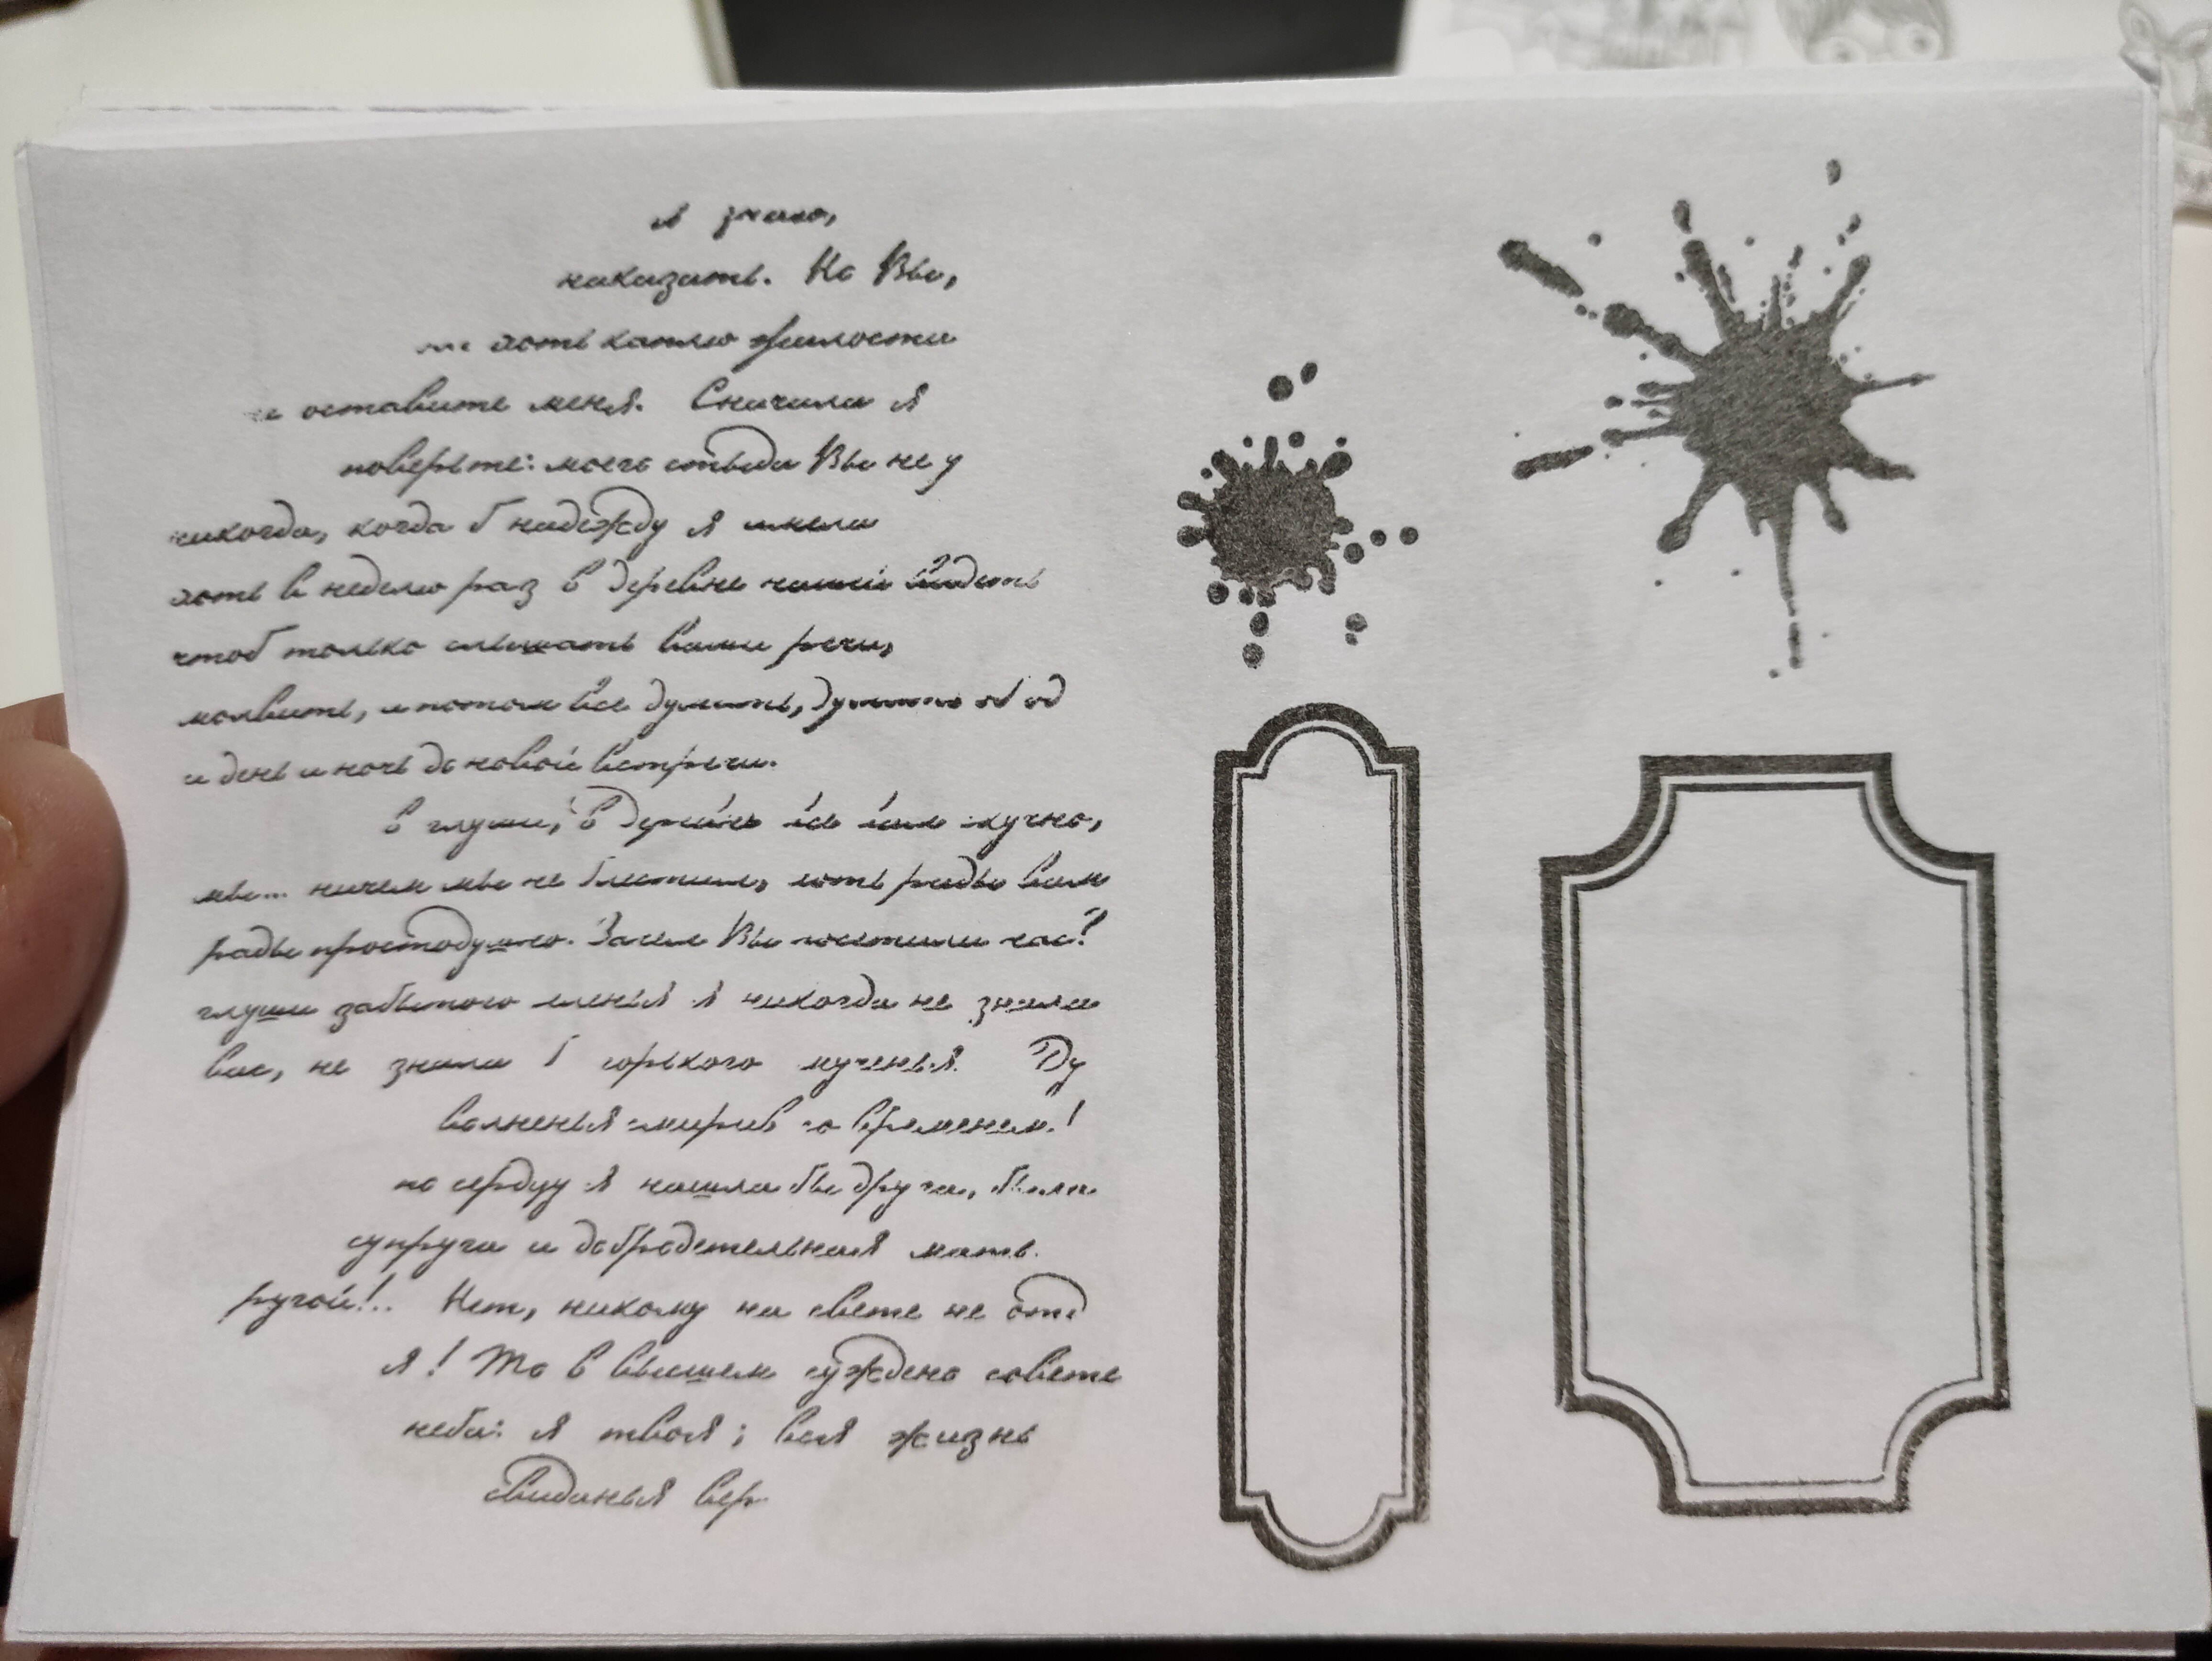 я знаю,
наказать. Но Вы,
хоть каплю жалости
не оставите меня. Сначала я
поверьте: моего стыда Вы не у
никогда, когда б надежду я имела
хоть в неделю раз в деревне нашей видеть
чтоб только слышать ваши речи,
молвить, и потом все думать, думать об од
и день и ночь до новой встречи.
в глуши, в деревне всё вам скучно,
мы... ничем мы не блестим, хоть рады вам
рады простодушно. Зачем Вы посетили нас?
глуши забытого селенья я никогда не знала
вас, не знала б горького мученья. Ду
волненья смирив со временем!
по сердцу я нашла бы друга, была
супруга и добродетельная мать.
ругой!.. Нет, никому на свете не отд
я! То в высшем суждено совете
неба: я твоя; вся жизнь
свиданья вер